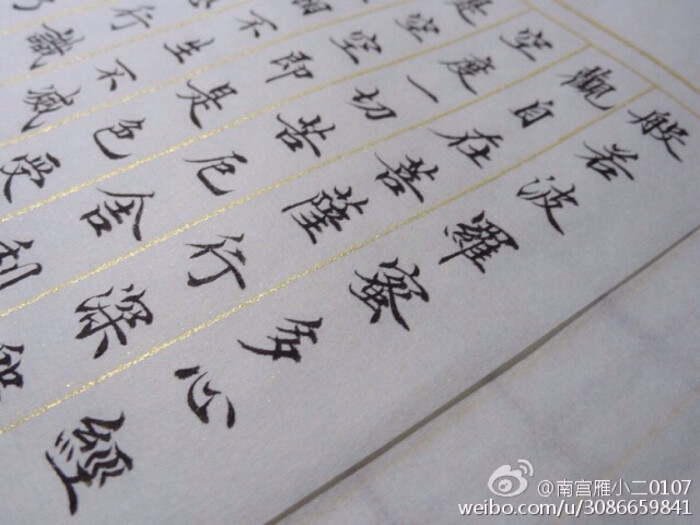 般若波羅蜜多心經
觀自在菩薩行深
空度一切苦厄舍利
是空空即是色受
相不生不滅
行識
@南宫雁小二0107
weibo.com/u/3086659841